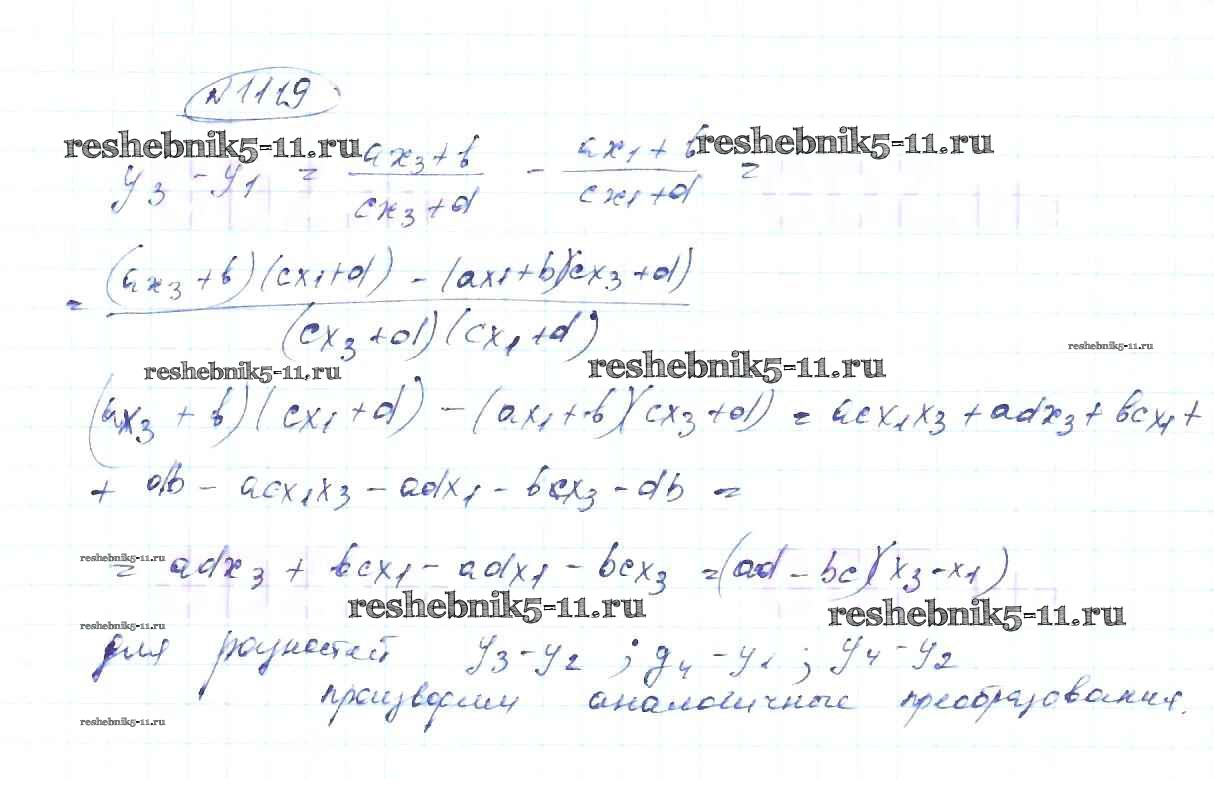 № 1119
reshebnik5-11.ru reshebnik5-11.ru
y₃ - y₁ = (ax₃ + b)/(cx₃ + d) - (ax₁ + b)/(cx₁ + d) =
= ((ax₃ + b)(cx₁ + d) - (ax₁ + b)(cx₃ + d))/((cx₃ + d)(cx₁ + d))
reshebnik5-11.ru reshebnik5-11.ru reshebnik5-11.ru
(ax₃ + b)(cx₁ + d) - (ax₁ + b)(cx₃ + d) = acx₁x₃ + adx₃ + bcx₁ +
+ db - acx₁x₃ - adx₁ - bcx₃ - db =
reshebnik5-11.ru
= adx₃ + bcx₁ - adx₁ - bcx₃ = (ad - bc)(x₃ - x₁)
reshebnik5-11.ru reshebnik5-11.ru
reshebnik5-11.ru
для разностей y₃ - y₂ ; y₄ - y₁ ; y₄ - y₂
производим аналогичные преобразования.
reshebnik5-11.ru